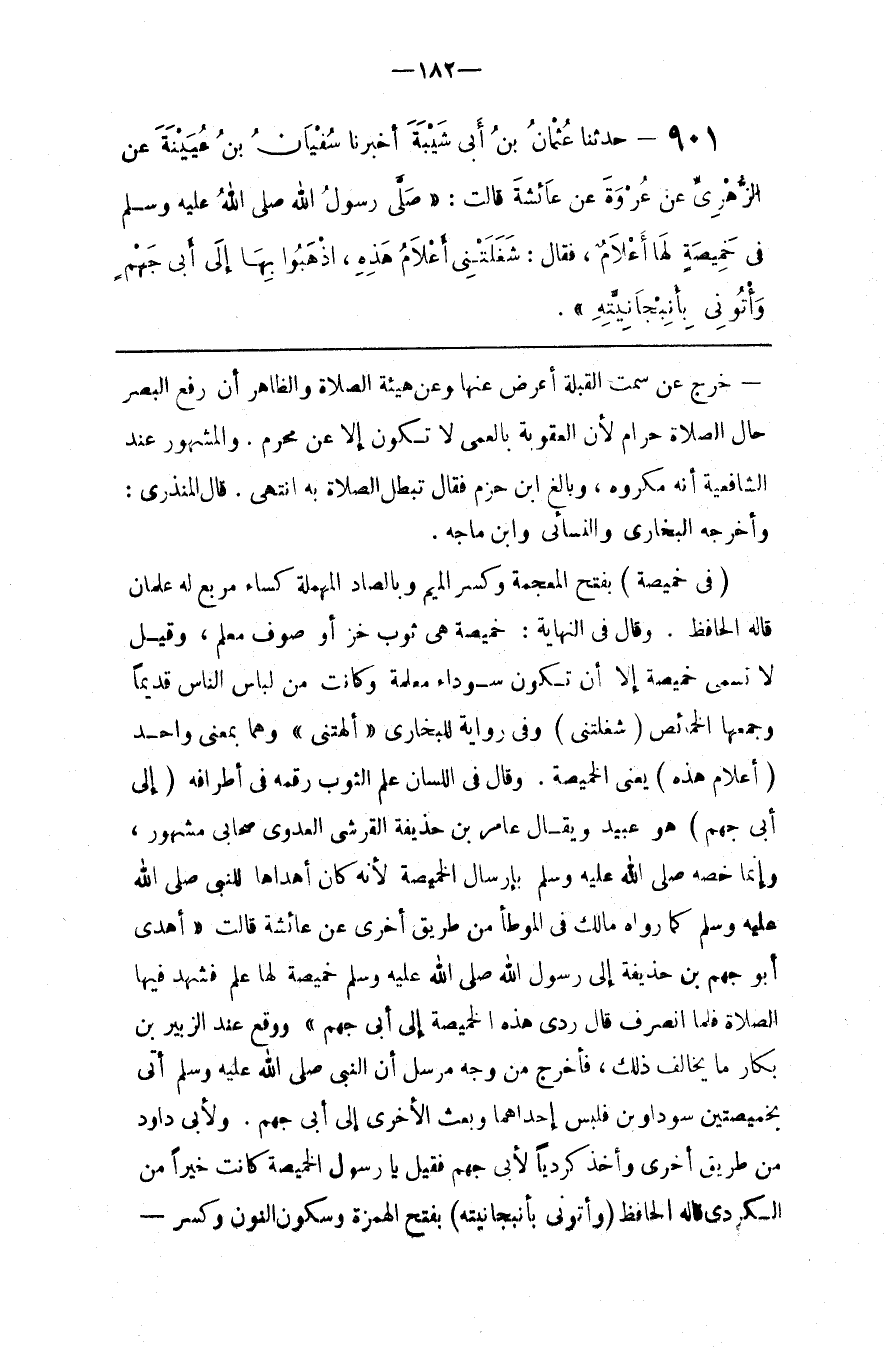 —١٨٢—
٩٠١ — حدثنا عُثْمانُ بنُ أَبى شَيْبَةَ أخبرنا سُفْيَانُ بنُ عُيَيْنَةَ عن
الزُّهْرِىِّ عن عُرْوَةَ عن عَائشةَ قالت : « صَلَّى رسولُ اللهِ صلى اللهُ عليه وسلم
فى خَمِيصَةٍ لهَا أَعْلَامٌ ، فقال : شَغَلَتْنِى أَعْلَامُ هَذِهِ ، اذْهَبُوا بِهَا إلَى أَبى جَهْمٍ
وَأْتُونِى بِأَنْبِجَانِيَّتِهِ » .
— خرج عن سمت القبلة أعرض عنها وعن هيئة الصلاة والظاهر أن رفع البصر
حال الصلاة حرام لأن العقوبة بالعمى لا تكون إلا عن محرم . والمشهور عند
الشافعية أنه مكروه ، وبالغ ابن حزم فقال تبطل الصلاة به انتهى . قال المنذرى :
وأخرجه البخارى والنسائى وابن ماجه .
( فى خميصة ) بفتح المعجمة وكسر الميم وبالصاد المهملة كساء مربع له علمان
قاله الحافظ . وقال فى النهاية : خميصة هى ثوب خز أو صوف معلم ، وقيل
لا تسمى خميصة إلا أن تكون سوداء معلمة وكانت من لباس الناس قديماً
وجمعها الخمائص ( شغلتنى ) وفى رواية للبخارى « ألهتنى » وهما بمعنى واحد
( أعلام هذه ) يعنى الخميصة . وقال فى اللسان علم الثوب رقمه فى أطرافه ( إلى
أبى جهم ) هو عبيد ويقال عامر بن حذيفة القرشى العدوى صحابى مشهور ،
وإنما خصه صلى الله عليه وسلم بإرسال الخميصة لأنه كان أهداها للنبى صلى الله
عليه وسلم كما رواه مالك فى الموطأ من طريق أخرى عن عائشة قالت « أهدى
أبو جهم بن حذيفة إلى رسول الله صلى الله عليه وسلم خميصة لها علم فشهد فيها
الصلاة فلما انصرف قال ردى هذه الخميصة إلى أبى جهم » ووقع عند الزبير بن
بكار ما يخالف ذلك ، فأخرج من وجه مرسل أن النبى صلى الله عليه وسلم أتى
بخميصتين سوداوين فلبس إحداهما وبعث الأخرى إلى أبى جهم . ولأبى داود
من طريق أخرى وأخذ كردياً لأبى جهم فقيل يا رسول الخميصة كانت خيراً من
الكردى قاله الحافظ (وأتونى بأنبجانيته) بفتح الهمزة وسكون النون وكسر —